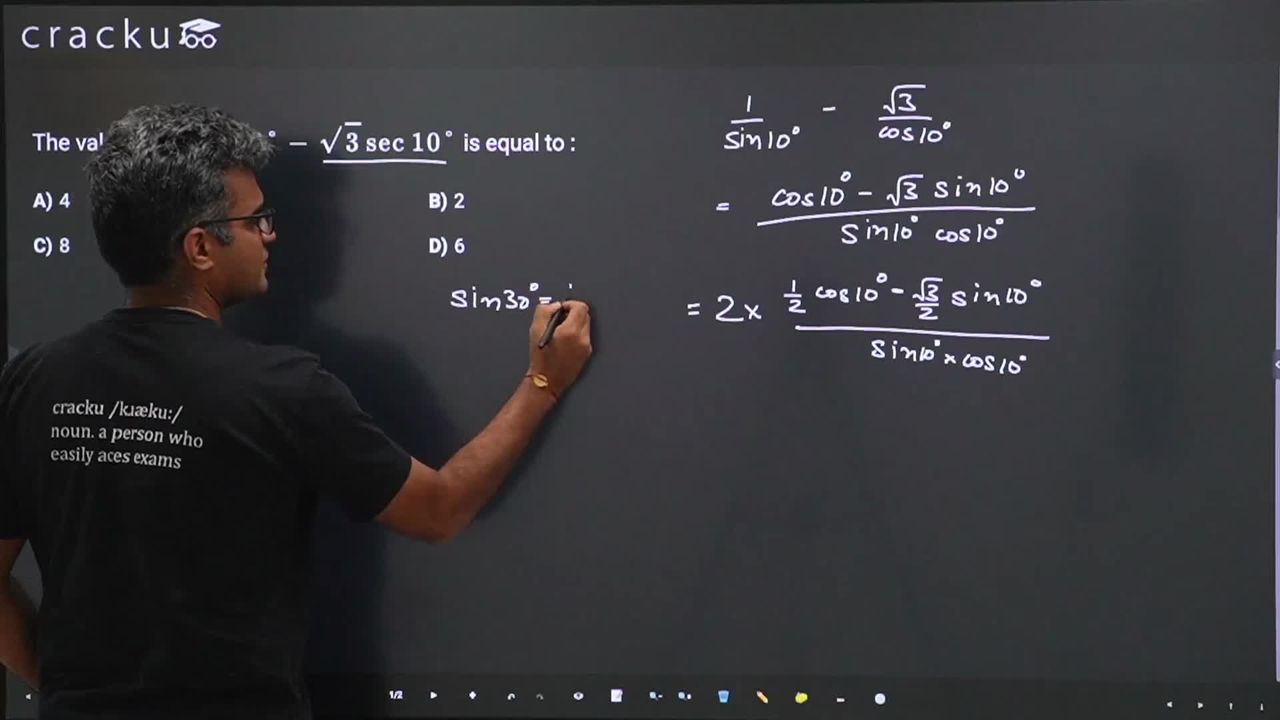 cracku
The val ° − √3 sec 10° is equal to :
A) 4
B) 2
C) 8
D) 6
1/sin10° - √3/cos10°
= cos10° - √3 sin10° / sin10° cos10°
sin30° =
= 2 x 1/2 cos10° - √3/2 sin10° / sin10° x cos10°
cracku /kıæku:/
noun. a person who
easily aces exams
1/2